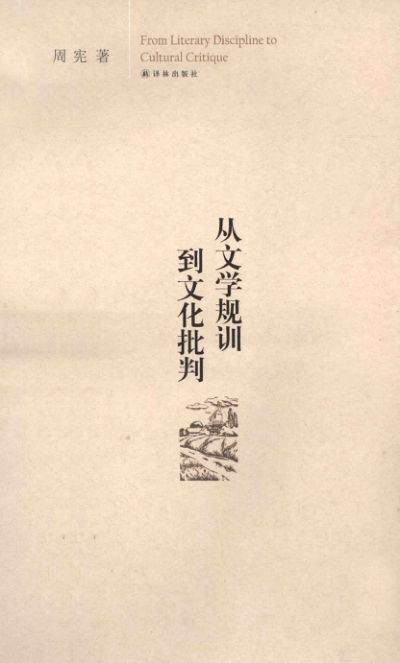 周宪 著
From Literary Discipline to
Cultural Critique
译林出版社
从文学规训
到文化批判